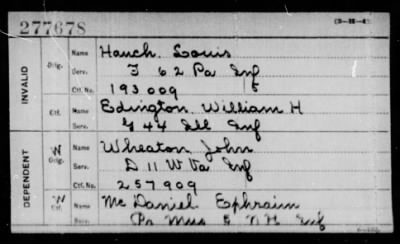 277678
(3-III-4)
INVALID
Orig.
Name Hauch, Louis
Serv. I 62 Pa Inf
Ctf. No. 193 009
Ctf.
Name Edington, William H
Serv. G 44 Ill Inf
DEPENDENT
W Orig.
Name Wheaton, John
Serv. D 11 W Va Inf
Ctf. No. 257909
W Ctf.
Name Mc Daniel Ephraim
Serv. Pr. Mus 5 N.H. Inf